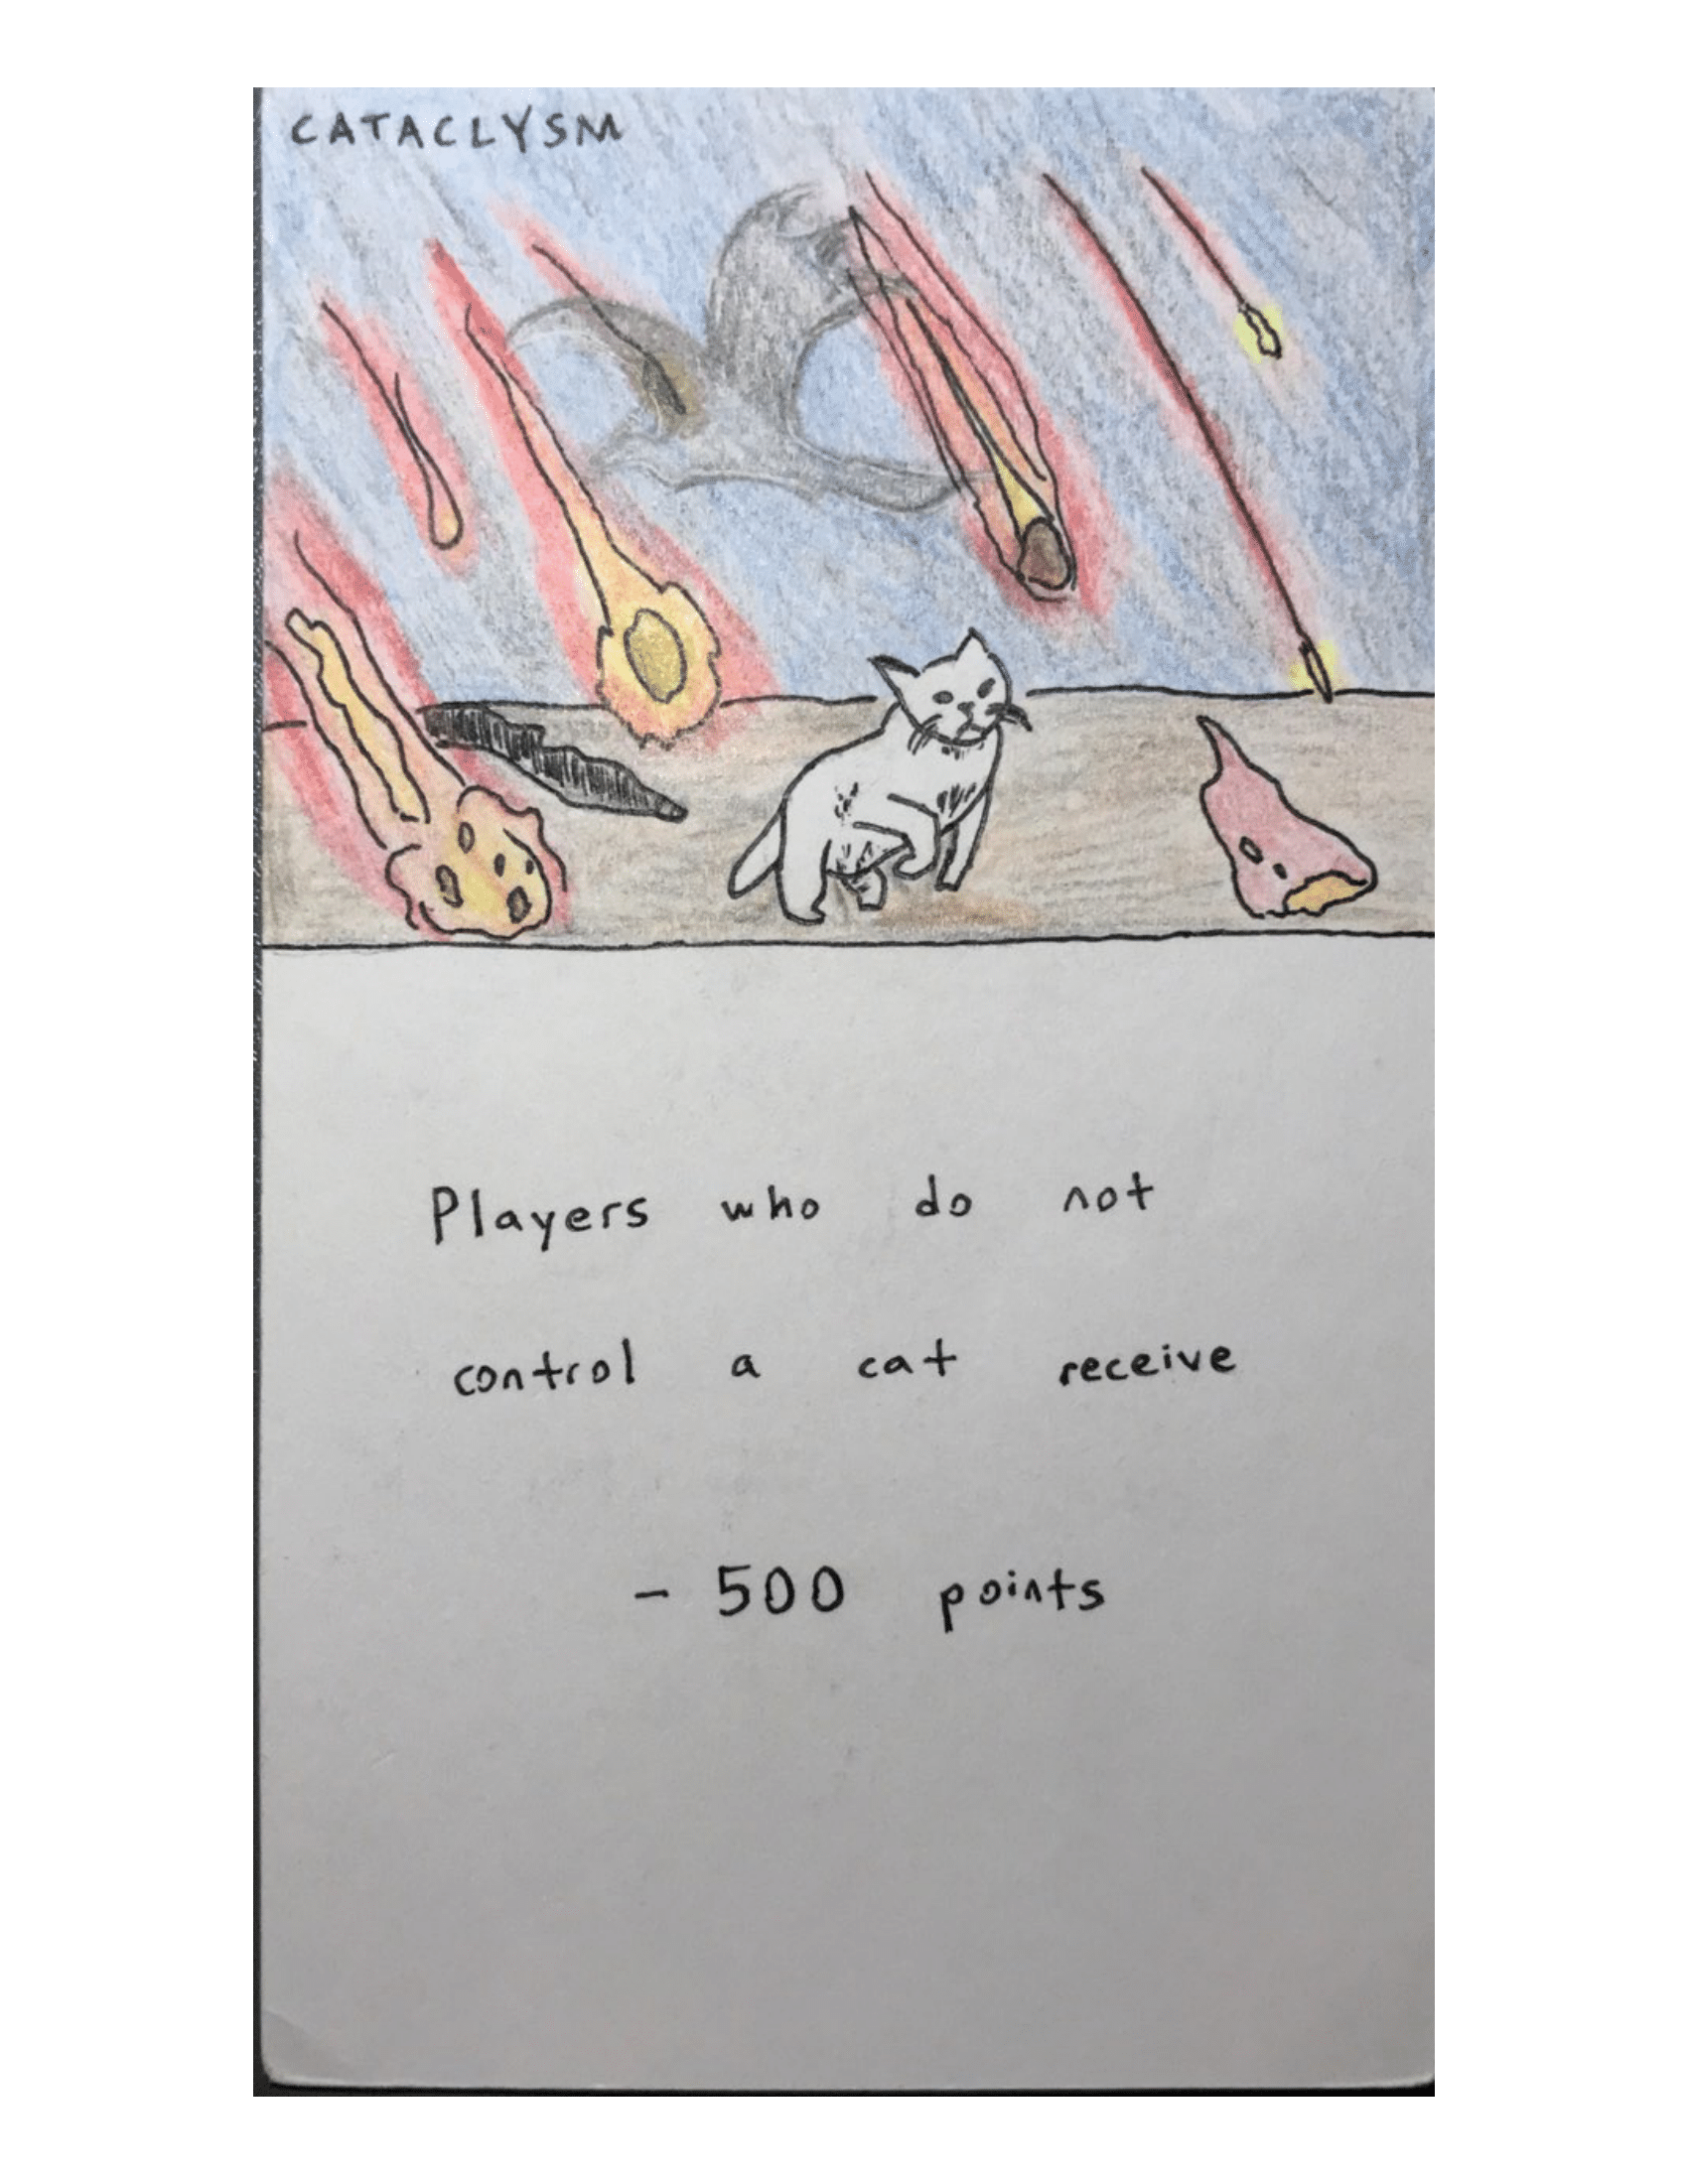 CATACLYSM
Players who do not
control a cat receive
- 500 points